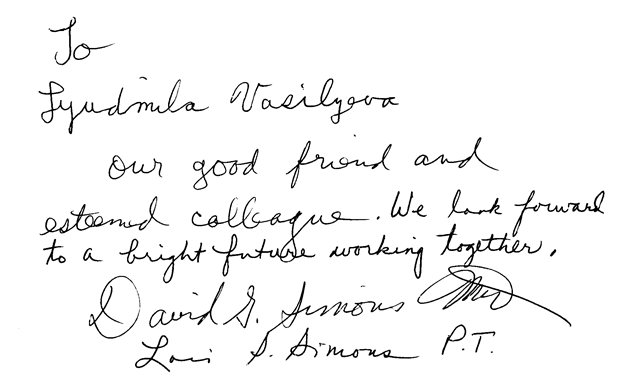 To
Lyudmila Vasilyeva
our good friend and
esteemed colleague. We look forward
to a bright future working together.
David G. Simons MD
Lois S. Simons P.T.